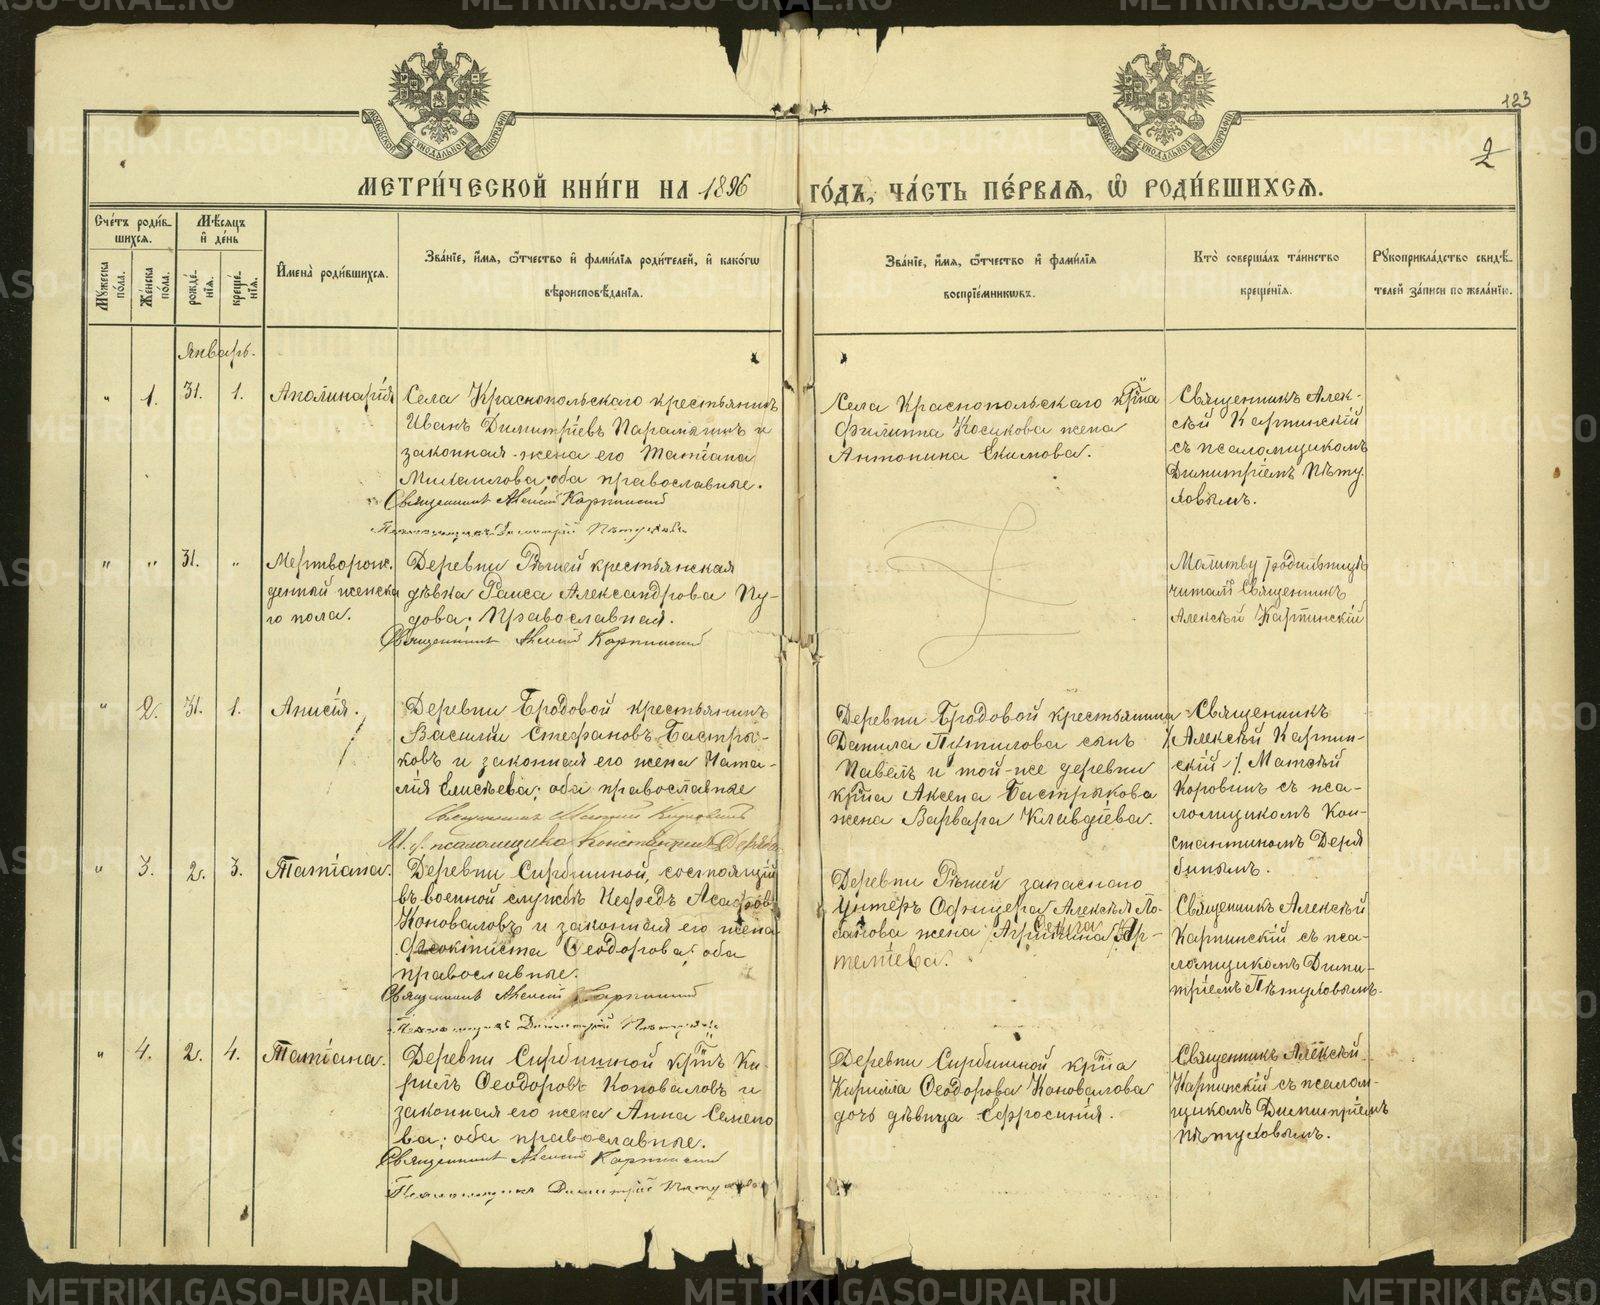 123
2
МОСКОВСКОЙ СѴНОДАЛЬНОЙ ТИПОГРАФІИ
МОСКОВСКОЙ СѴНОДАЛЬНОЙ ТИПОГРАФІИ
МЕТРИ́ЧЕСКОЙ КНИ́ГИ НА 1896 ГО́ДЪ, ЧА́СТЬ ПЕ́РВАѦ, Ѡ҆ РОДИ́ВШИХСѦ.
Сче́тъ роди́в-
шихсѧ.
Мꙋ́жеска по́ла.
Же́нска по́ла.
Мѣ́сѧцъ
и҆ де́нь
рожде́-
нїѧ.
креще́-
нїѧ.
И҆мена̀ роди́вшихсѧ.
Зва́нїе, и҆́мѧ, ѻ҆́тчество и҆ фами́лїѧ роди́телей, и҆ како́гѡ
вѣроисповѣ́данїѧ.
Зва́нїе, и҆́мѧ, ѻ҆́тчество и҆ фами́лїѧ
воспрїе́мникѡвъ.
Кто̀ соверша́лъ та́инство
креще́нїѧ.
Рꙋкоприкла́дство свидѣ́-
телей за́писи по жела́нїю.
Январь.
" 1. 31. 1. Аполинарія
Села Краснопольскаго крестьянинъ
Иванъ Димитріевъ и
законная жена его Татіана
Михаилова; оба православные.
Священникъ Алексій Карпинскій
Псаломщикъ Димитрій Пѣтуховъ
Села Краснопольскаго кр͠на
Филиппа Косикова жена
Антонина Екимова.
Священникъ Алек-
сѣй Карпинскій
съ псаломщикомъ
Димитріемъ Пѣту
ховымъ.
" " 31. " Мертворож.
денной женска
го пола.
Деревни Рѣшей крестьянская
дѣвка Раиса Александрова Пу-
дова; Православная.
Священникъ Алексій Карпинскій
Молитву родильницѣ
читалъ Священникъ
Алексѣй Карпинскій
" 2. 31. 1. Анисія.
Деревни Бродовой крестьянинъ
Василій Стефановъ Бастры-
ковъ и законная его жена Ната-
лія Елисѣева; оба православные
Священникъ
И. д. псаломщика Константинъ
Деревни Бродовой крестьянина
Данила Путилова сынъ
Павелъ и той-же деревни
кр͠на Аксена Бастрыкова
жена Варвара Клавдіева.
Священникъ
Алексѣй Карпин-
скій Матѳѣй
Коровинъ съ пса-
ломщикомъ Кон-
стантиномъ Деря
бинымъ.
" 3. 2. 3. Татіана.
Деревни Сарбишной, состоящій
въ военной службѣ Нефедъ Асафовъ
Коноваловъ и законная его жена
Феоктиста Ѳеодорова; оба
православные.
Священникъ Алексій Карпинскій
Псаломщикъ Димитрій Пѣтуховъ
Деревни Рѣшей запаснаго
Унтеръ Офицера Алексѣя Ло-
банова жена Агрипина Ар-
теміева.
Священникъ Алексѣй
Карпинскій съ пса-
ломщикомъ Дими-
тріемъ Пѣтуховымъ.
" 4. 2. 4. Татіана.
Деревни Сарбишной кр͠нъ Ки-
рилъ Ѳеодоровъ Коноваловъ и
законная его жена Анна Семено
ва; оба православные.
Священникъ Алексій Карпинскій
Псаломщикъ Димитрій Пѣтуховъ
Деревни Сарбишной кр͠на
Кирилла Ѳеодорова Коновалова
дочь дѣвица Ефросинія.
Священникъ Алексѣй
Карпинскій съ псалом-
щикомъ Димитріемъ
Пѣтуховымъ.
METRIKI.GASO-URAL.RU